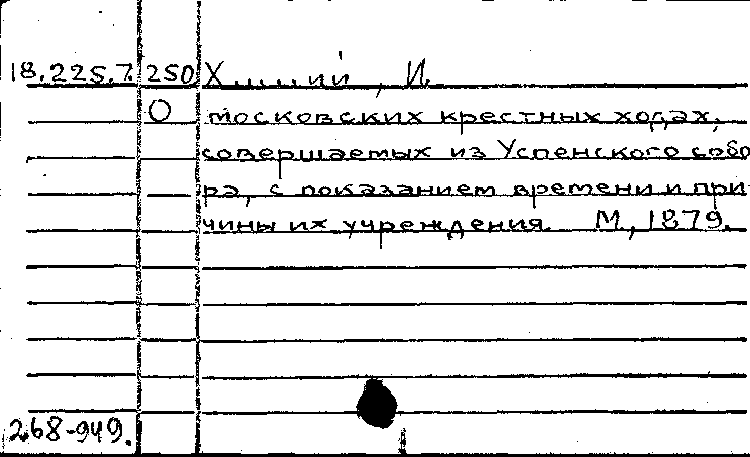 18.225.7.250 Х......ий, И.
О московских крестных ходах,
совершаемых из Успенского собо
ра, с показанием времени и при
чины их учреждения. М., 1879.
268-949.